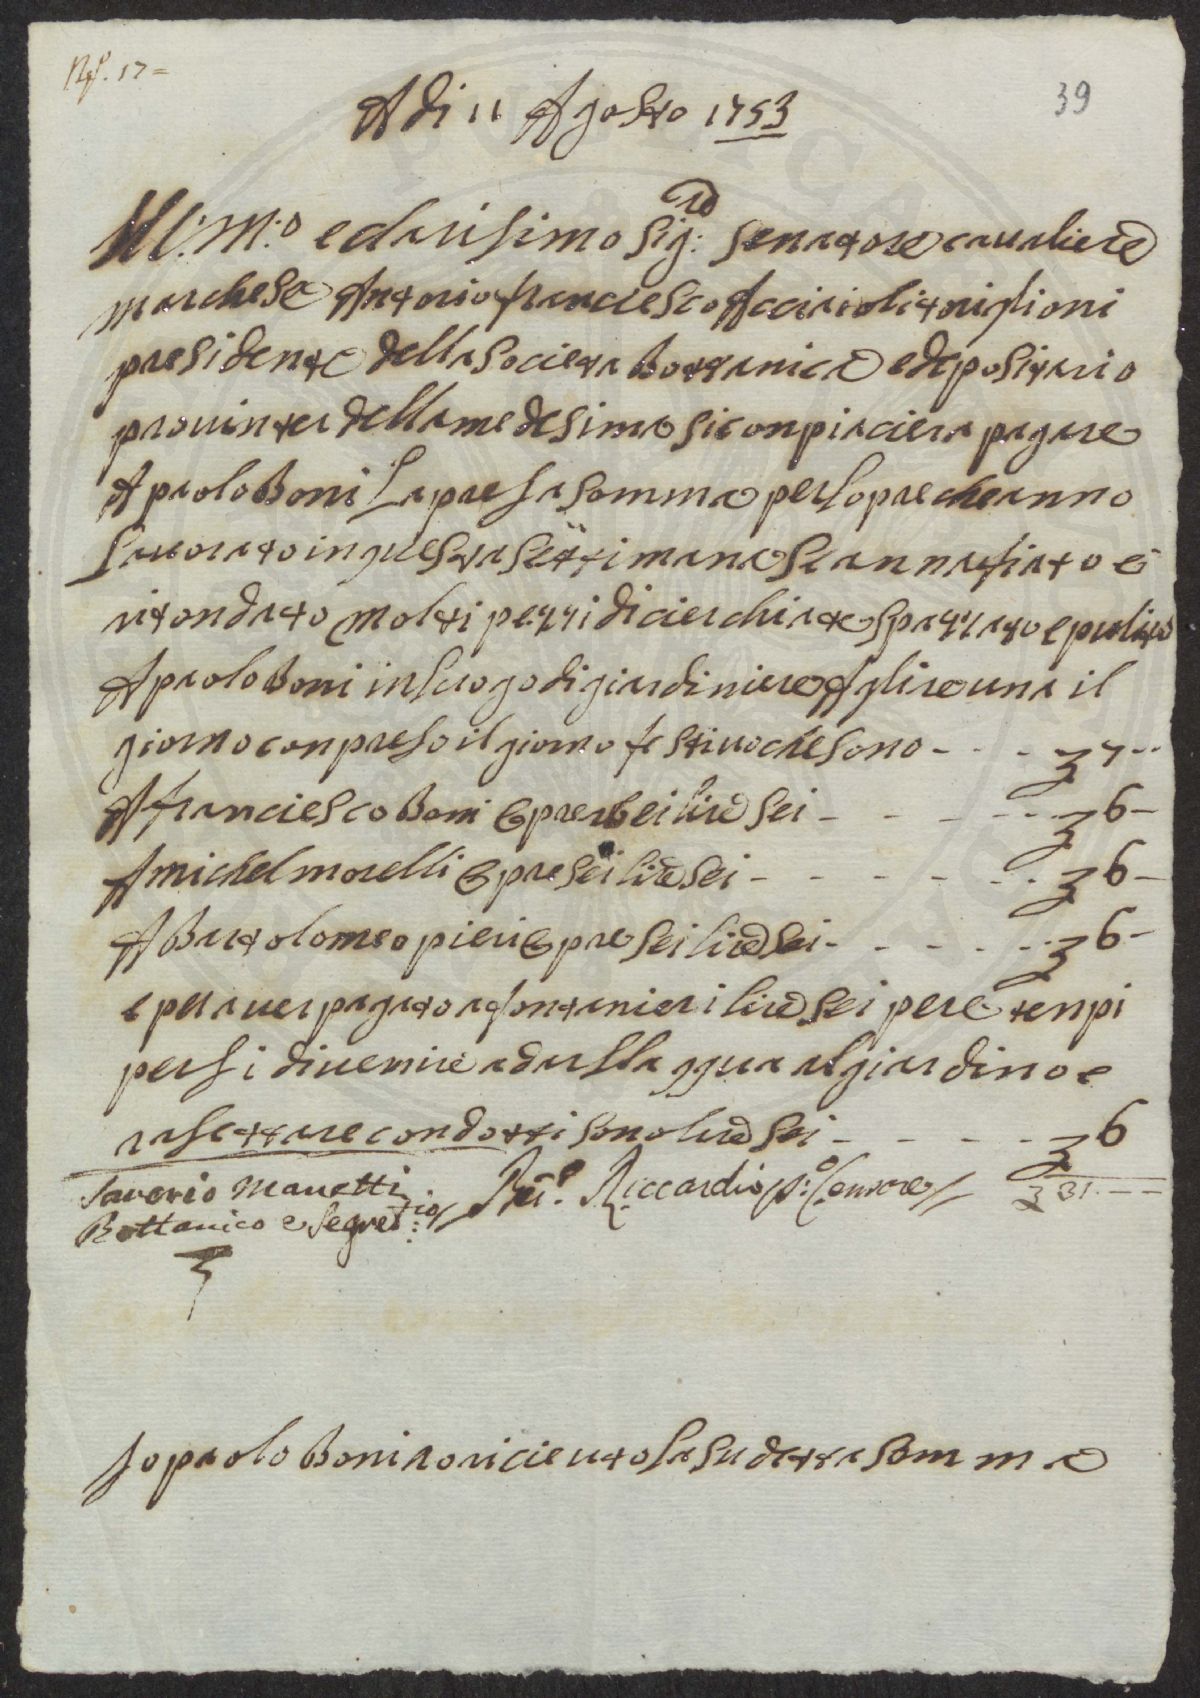 No. 17 =
39
A di 11 Agosto 1753
Ill:m:o e clarisimo Sig:re Senatore cavaliere
marchese Antonio franciesco Acciaioli toriglioni
presidente della Societa Bottanica e depositario
provinter della medesima si conpiaciera pagare
A paolo Boni La presa somma per lopre che anno
Lavorato in questa settimana Si annafiato e
ritondato molti pezzi di cierchiate spazzato e pulito
A paolo Boni in luogo di giardiniere A lire una il
giorno conpreso il giorno festivo che sono - - - 7 --
A franciesco Boni opre sei lire sei - - - - - 6 -
A michel morelli opre sei lire sei - - - - - - 6 -
A Bartolomeo pieri opre sei lire sei - - - - - 6 -
e per aver pagato a fontanieri lire sei per e tenpi
persi di venire a dar lla qqua al giardino e
rasettare condotti sono lire sei - - - - - 6
31. - -
Saverio Manetti
Bottanico e Segret:rio
Riccardi Censore
Io paolo Boni o riceuto la sudetta somma